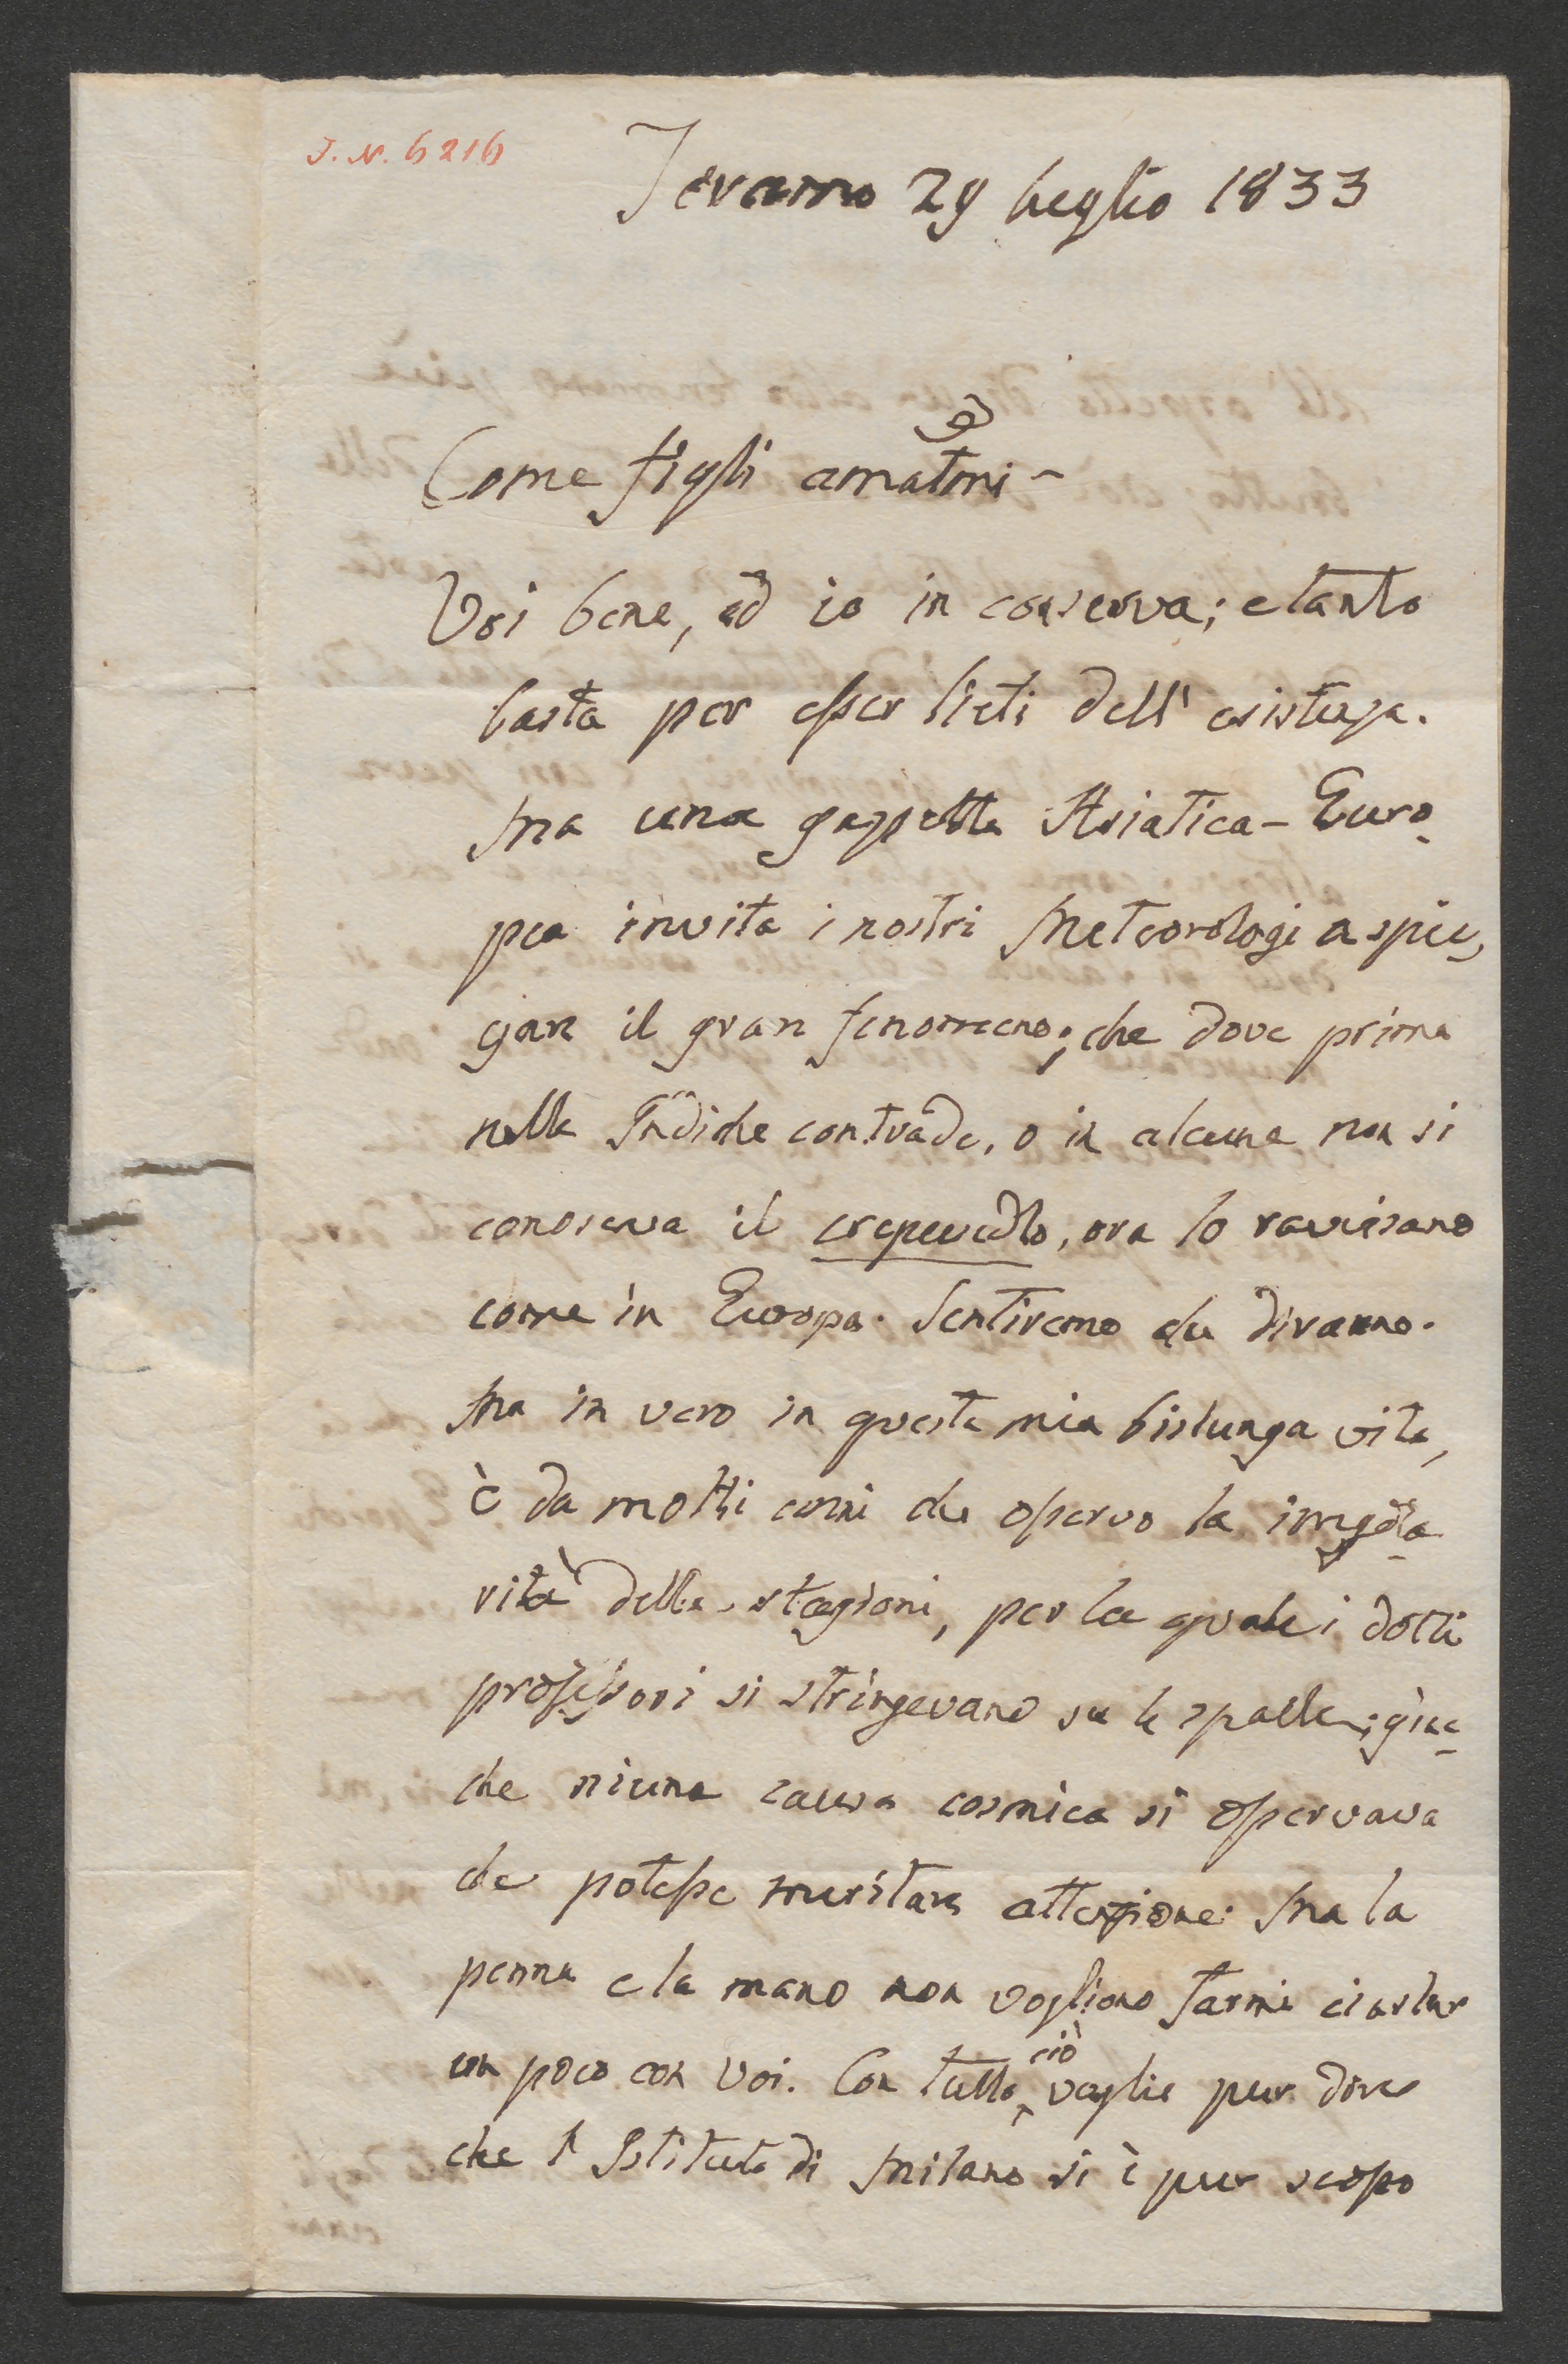 J. N. 6216
Teramo 29 luglio 1833
Come figli amatmi -
Voi bene, ed io in conserva; e tanto
basta per esser lieti dell' esistenza.
Ma una gazzetta Asiatica-Euro-
pea invita i nostri Meteorologi a spie-
gare il gran fenomeno; che dove prima
nelle Indiche contrade, o in alcune non si
conosceva il crepuscolo, ora lo ravvisano
come in Europa. Sentiremo che diranno.
Ma in vero in questa mia bislunga vita,
è da molti anni che osservo la irregola-
rità delle stagioni, per la quale i dotti
professori si stringevano su le spalle; giac-
che niuna causa cosmica si osservava
che potesse meritare attenzione. Ma la
penna e la mano non vogliono farmi ciarlar
un poco con voi. Con tutto ciò voglio pur dire
che l'Istituto di Milano si è pur scosso